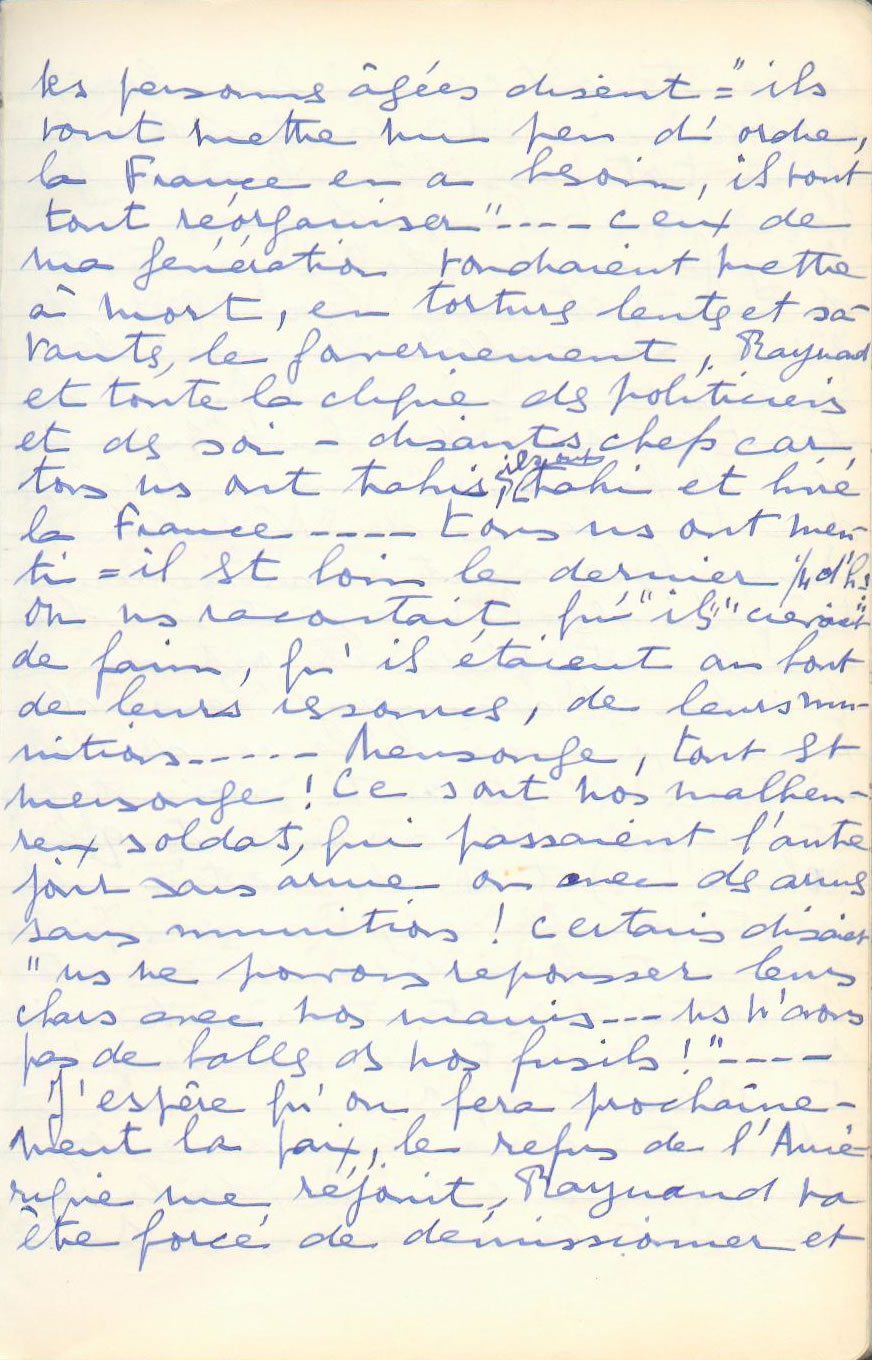 les personnes âgées disent = "ils
vont mettre un peu d'ordre,
la France en a besoin, ils vont
tout réorganiser" ---- ceux de
ma génération voudraient mettre
à mort, en tortures lentes et sa-
vantes, le gouvernement, Raynaud
et toute la clique des politiciens
et des soi-disants chefs car
tous ns ont trahis, ils ont trahi et livré
la France ---- tous ns ont men-
ti = il est loin le dernier 1/4 d'h :
on ns racontait qu'"ils" "crevaient"
de faim, qu'ils étaient au bout
de leurs ressources, de leurs mu-
nitions ----- Mensonge, tout est
mensonge ! Ce sont nos malheu-
reux soldats, qui passaient l'autre
jour sans arme ou avec des armes
sans munitions ! Certains disaient
"ns ne pouvons repousser leurs
chars avec nos mains --- ns n'avons
pas de balles ds nos fusils !" ----
J'espère qu'on fera prochaine-
ment la paix, le refus de l'Amé-
rique me réjouit, Raynaud va
être forcé de démissionner et